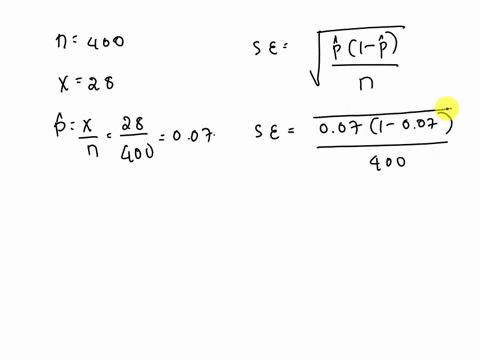 n = 400
x = 28
p̂ = x/n = 28/400 = 0.07.
SE = √(p̂(1-p̂)/n)
SE = 0.07(1-0.07)/400